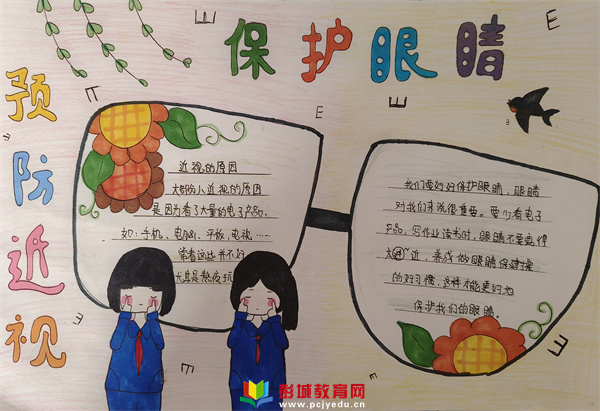 保护眼睛
预防近视
近视的原因
大部分人近视的原因
是因为看了大量的电子产品。
如：手机、电脑、平板、电视……
常看这些并不好
我们要好好保护眼睛，眼睛
对我们来说很重要。要少看电子
产品，写作业读书时，眼睛不要靠得
太近，养成做眼睛保健操
的好习惯，这样才能更好地
保护我们的眼睛。
彭城教育网
www.pcjyedu.cn
E
E
E
E
E
E